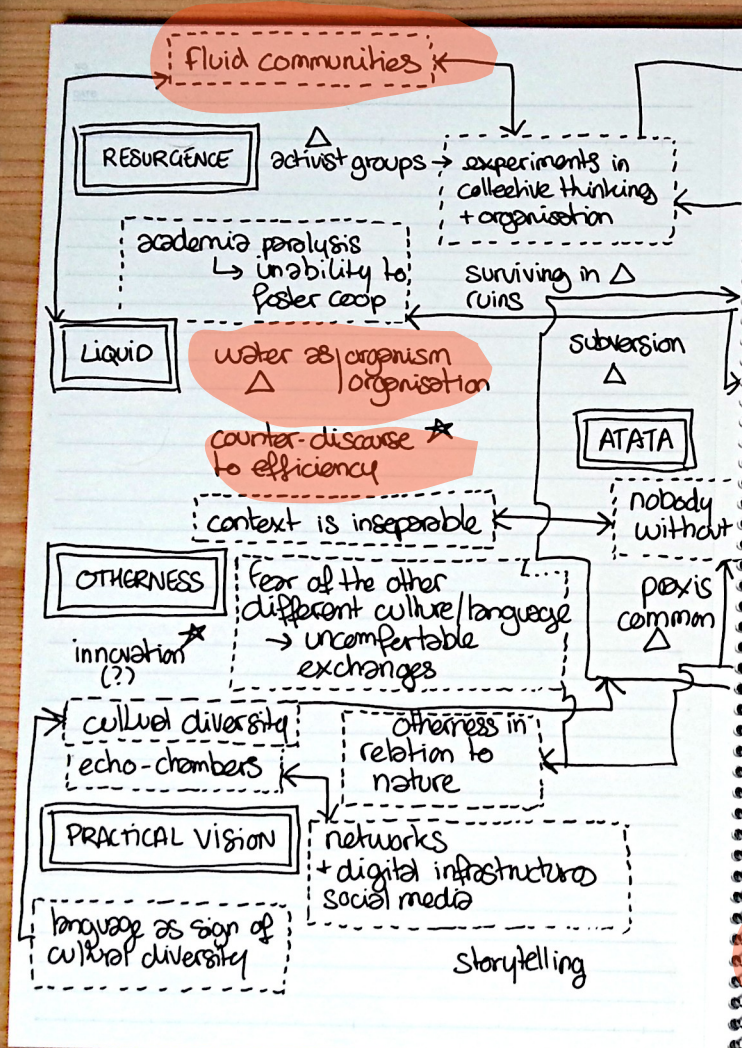 fluid communities
RESURGENCE
activist groups → experiments in
collective thinking
+ organisation
academia paralysis
↳ inability to
foster coop
surviving in
ruins
LIQUID
water as/organism
/organisation
subversion
counter-discourse
to efficiency
ATATA
context is inseparable
nobody
without
OTHERNESS
fear of the other
different culture/language
→ uncomfertable
exchanges
praxis
common
innovation
(?)
cultual diversity
otherness in
relation to
nature
echo-chambers
PRACTICAL VISION
networks
+ digital infrastructures
social media
language as sign of
cultural diversity
storytelling